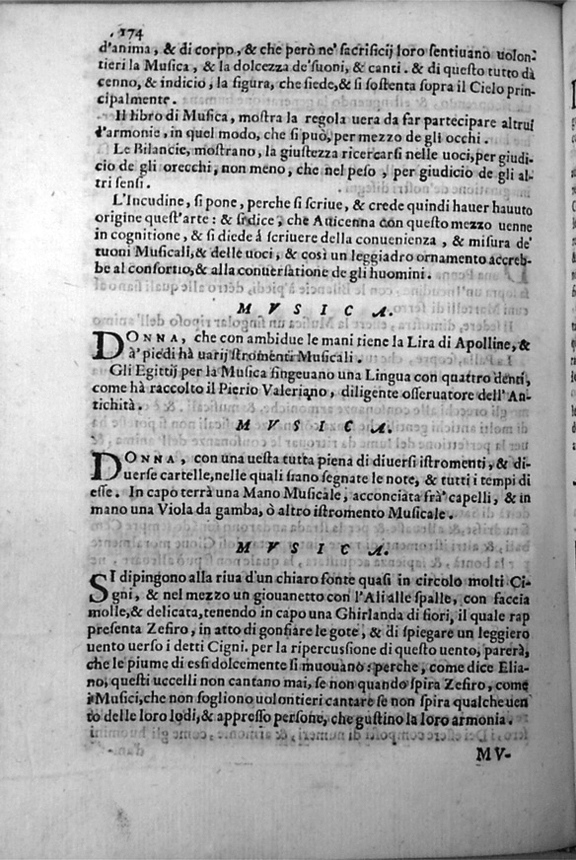 174
d'anima, & di corpo, & che però ne' sacrificij loro sentiuano uolon-
tieri la Musica, & la dolcezza de'suoni, & canti. & di questo tutto dà
cenno, & indicio, la figura, che siede, & si sostenta sopra il Cielo prin-
cipalmente.
Il libro di Musica, mostra la regola uera da far partecipare altrui
l'armonie, in quel modo, che si può, per mezzo de gli occhi.
Le Bilancie, mostrano, la giustezza ricercarsi nelle uoci, per giudi-
cio de gli orecchi, non meno, che nel peso, per giudicio de gli al-
tri sensi.
L'Incudine, si pone, perche si scriue, & crede quindi hauer hauuto
origine quest'arte: & si dice, che Auicenna con questo mezzo uenne
in cognitione, & si diede á scriuere della conuenienza, & misura de'
tuoni Musicali, & delle uoci, & così un leggiadro ornamento accreb-
be al consortio, & alla conuersatione de gli huomini.
MVSICA.
DONNA, che con ambidue le mani tiene la Lira di Apolline, &
a' piedi hà uarij stromenti Musicali.
Gli Egittij per la Musica fingeuano una Lingua con quattro denti,
come hà raccolto il Pierio Valeriano, diligente osseruatore dell'An-
tichità.
MVSICA.
DONNA, con una uesta tutta piena di diuersi istromenti, & di-
uerse cartelle, nelle quali siano segnate le note, & tutti i tempi di
esse. In capo terrà una Mano Musicale, acconciata frà' capelli, & in
mano una Viola da gamba, ò altro istromento Musicale.
MVSICA.
SI dipingono alla riua d'un chiaro fonte quasi in circolo molti Ci-
gni, & nel mezzo un giouanetto con l'Ali alle spalle, con faccia
molle, & delicata, tenendo in capo una Ghirlanda di fiori, il quale rap
presenta Zefiro, in atto di gonfiare le gote, & di spiegare un leggiero
uento uerso i detti Cigni. per la ripercussione di questo uento, parerà,
che le piume di essi dolcemente si muouano: perche, come dice Elia-
no, questi uccelli non cantano mai, se non quando spira Zefiro, come
i Musici, che non sogliono uolontieri cantare se non spira qualche uen
to delle loro lodi, & appresso persone, che gustino la loro armonia.
MV-